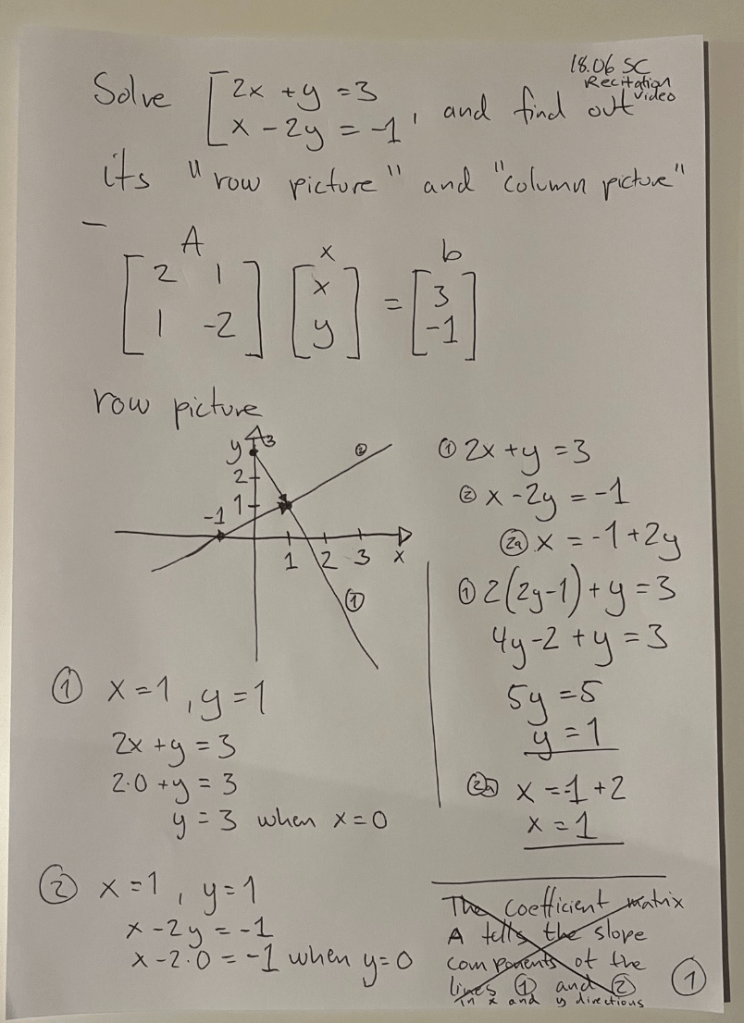 18.06 SC
Recitation
video
Solve [2x + y = 3
x - 2y = -1, and find out
its "row picture" and "column picture"
-
A x b
[2 1] [x] = [3]
[1 -2] [y] [-1]
row picture
y 3
2
1
-1
1 2 3 x
②
①
① 2x + y = 3
② x - 2y = -1
②a x = -1 + 2y
① 2(2y-1) + y = 3
4y - 2 + y = 3
5y = 5
y = 1
②a x = -1 + 2
x = 1
① x = 1, y = 1
2x + y = 3
2·0 + y = 3
y = 3 when x = 0
② x = 1, y = 1
x - 2y = -1
x - 2·0 = -1 when y = 0
The coefficient matrix
A tells the slope
components of the
lines ① and ②
in x and y directions
①